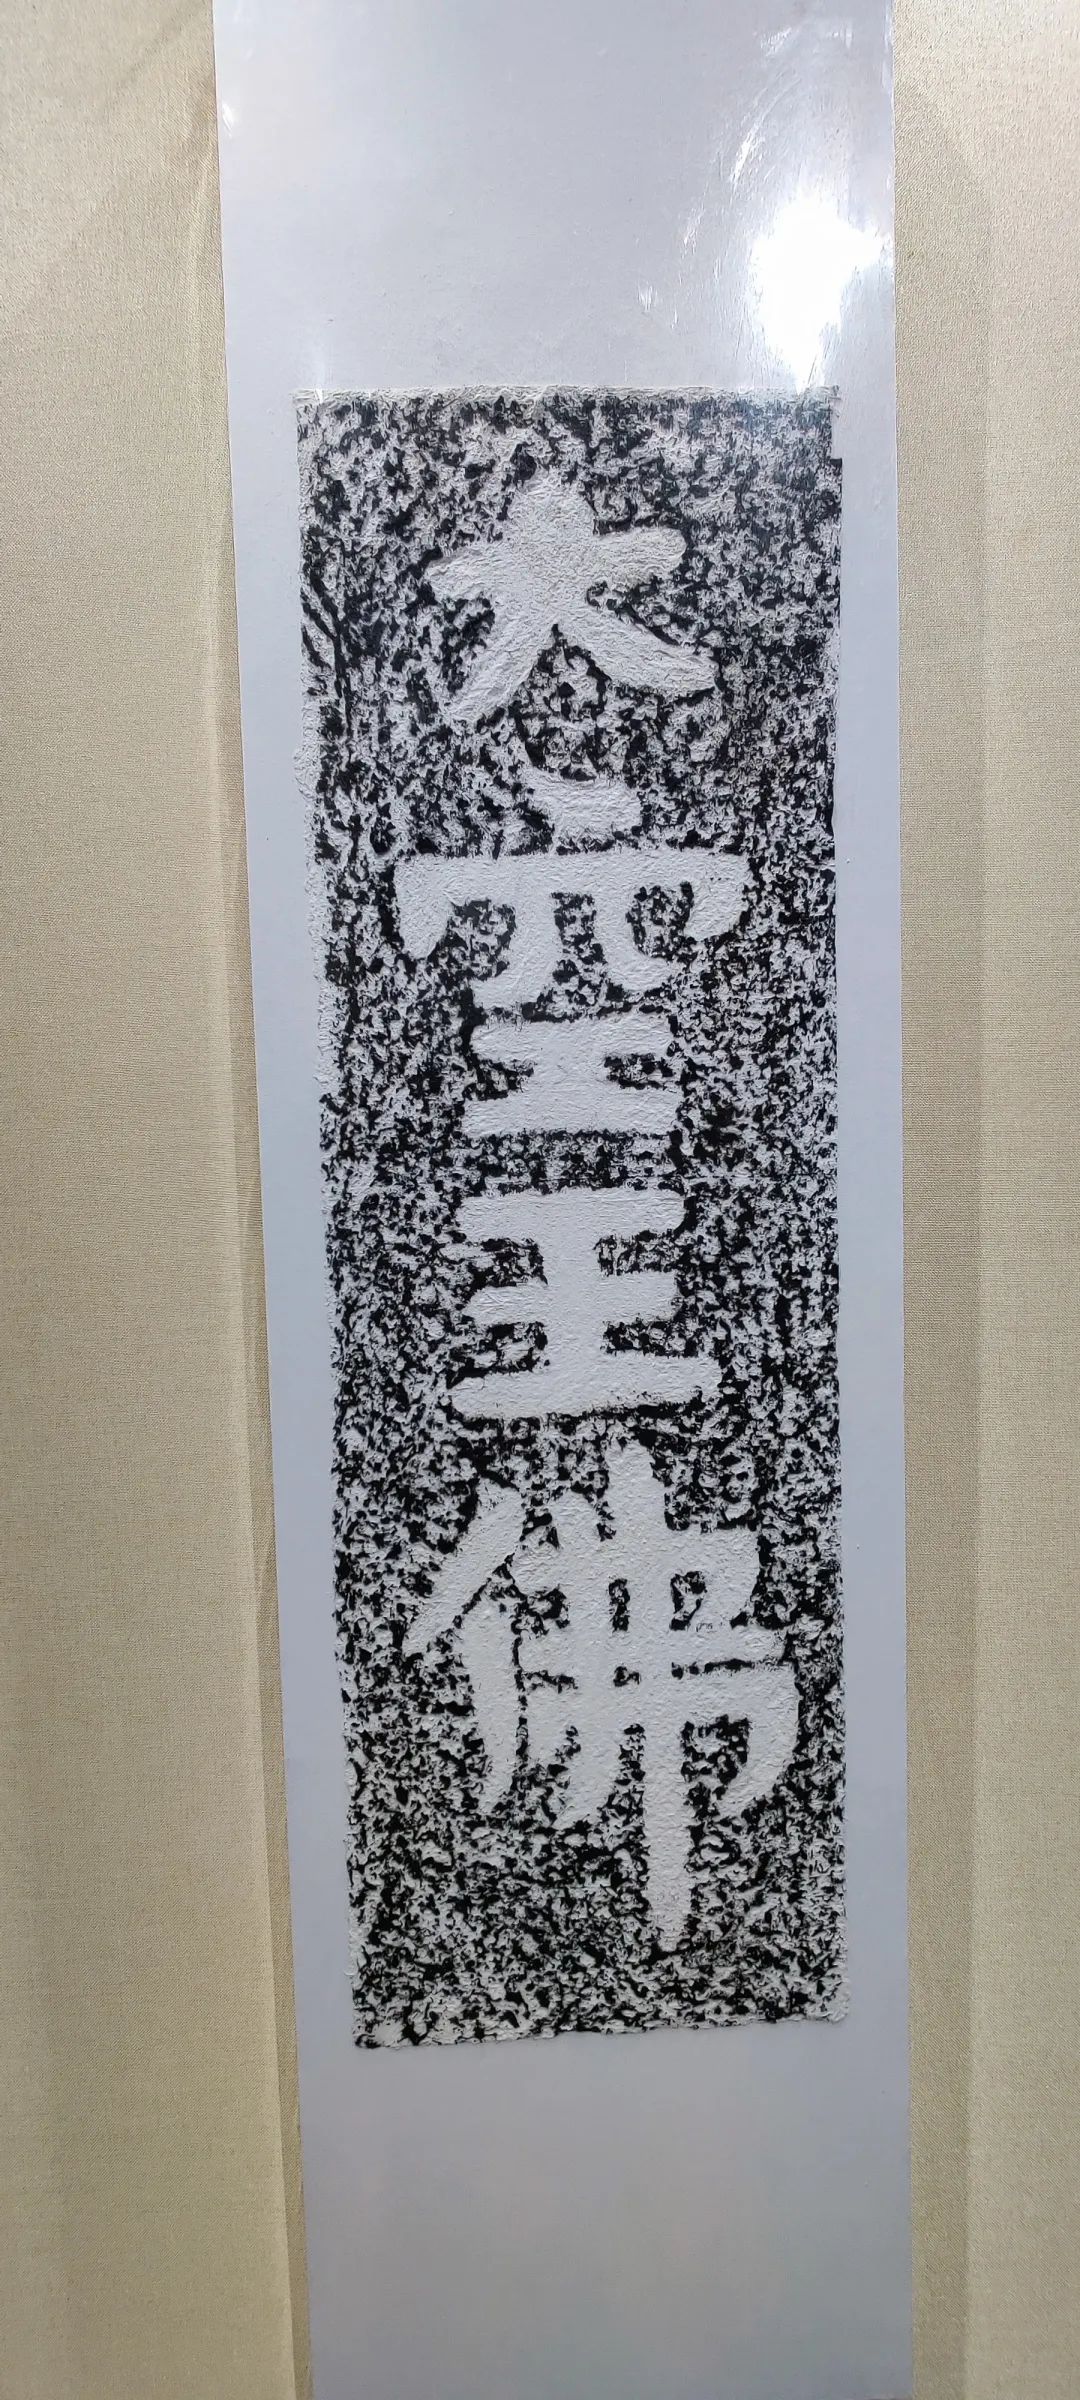 大空王佛